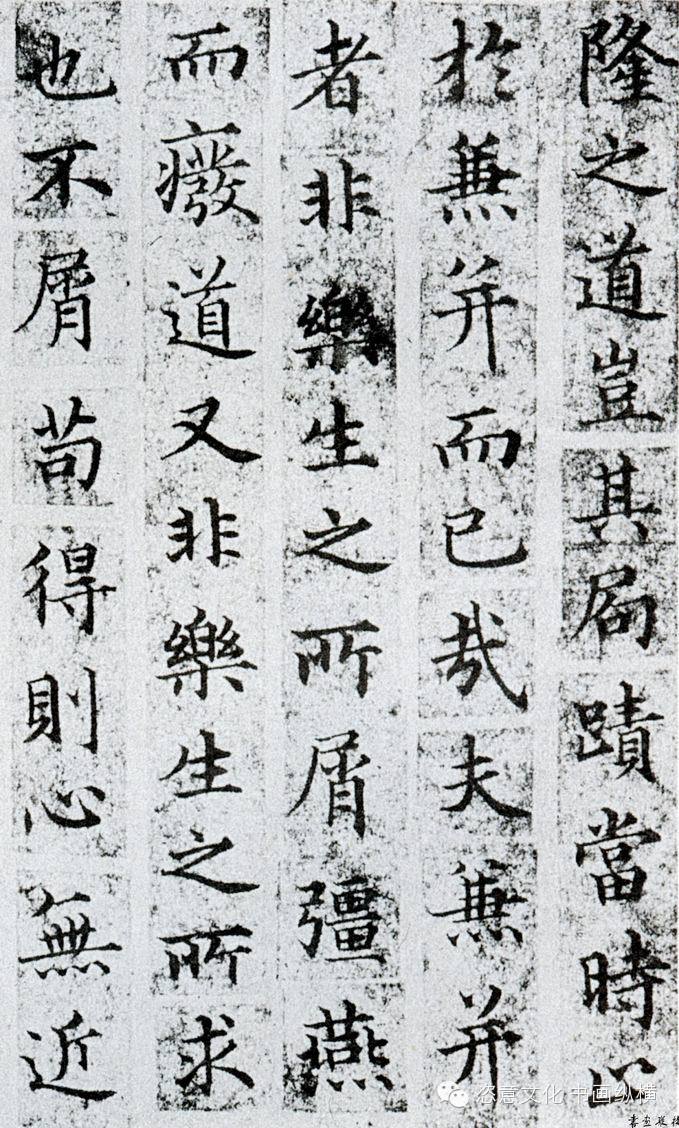 隆之道豈其局蹟當時止
於兼并而已哉夫兼并
者非樂生之所屑彊燕
而癈道又非樂生之所求
也不屑苟得則心無近
恣意文化 中画纵横